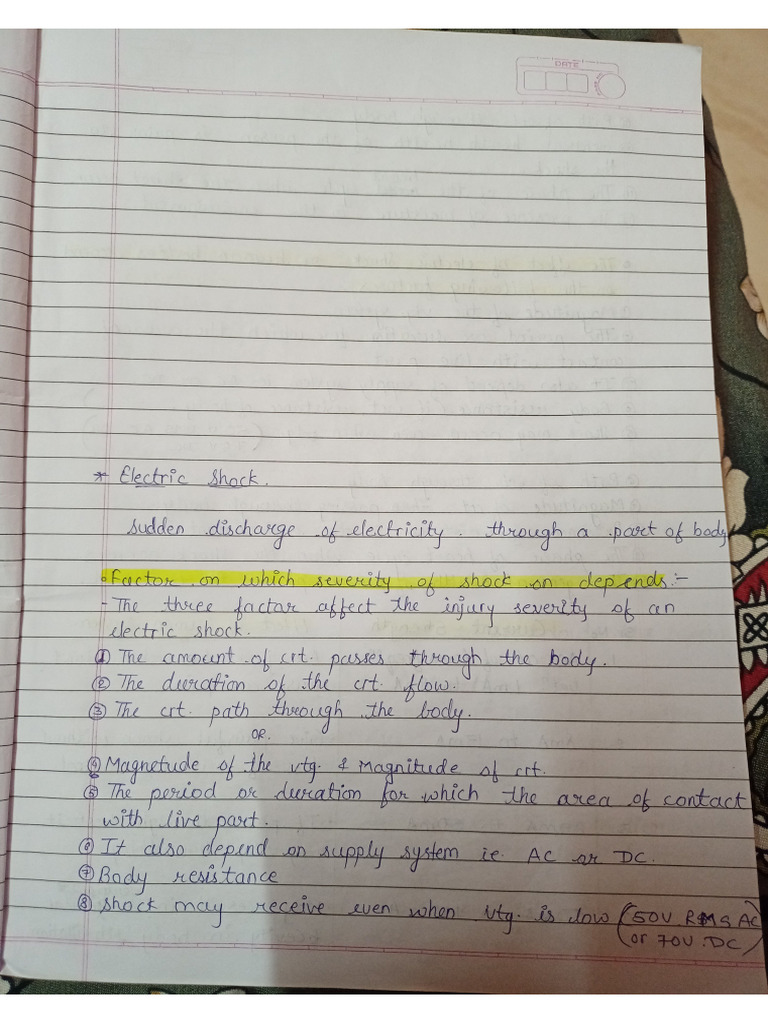 DATE
* Electric Shock.
Sudden discharge of electricity. through a part of body
• Factor on which severity of shock on depends:-
- The three factor affect the injury severity of an
electric shock.
① The amount of crt. passes through the body.
② The duration of the crt. flow.
③ The crt. path through the body.
OR.
④ Magnetude of the vtg. & Magnitude of crt.
⑤ The period or duration for which the area of contact
with live part.
⑥ It also depend on supply system ie. AC or DC.
⑦ Body resistance
⑧ Shock may receive even when vtg. is low (50V. RMS AC
or 70V. DC)